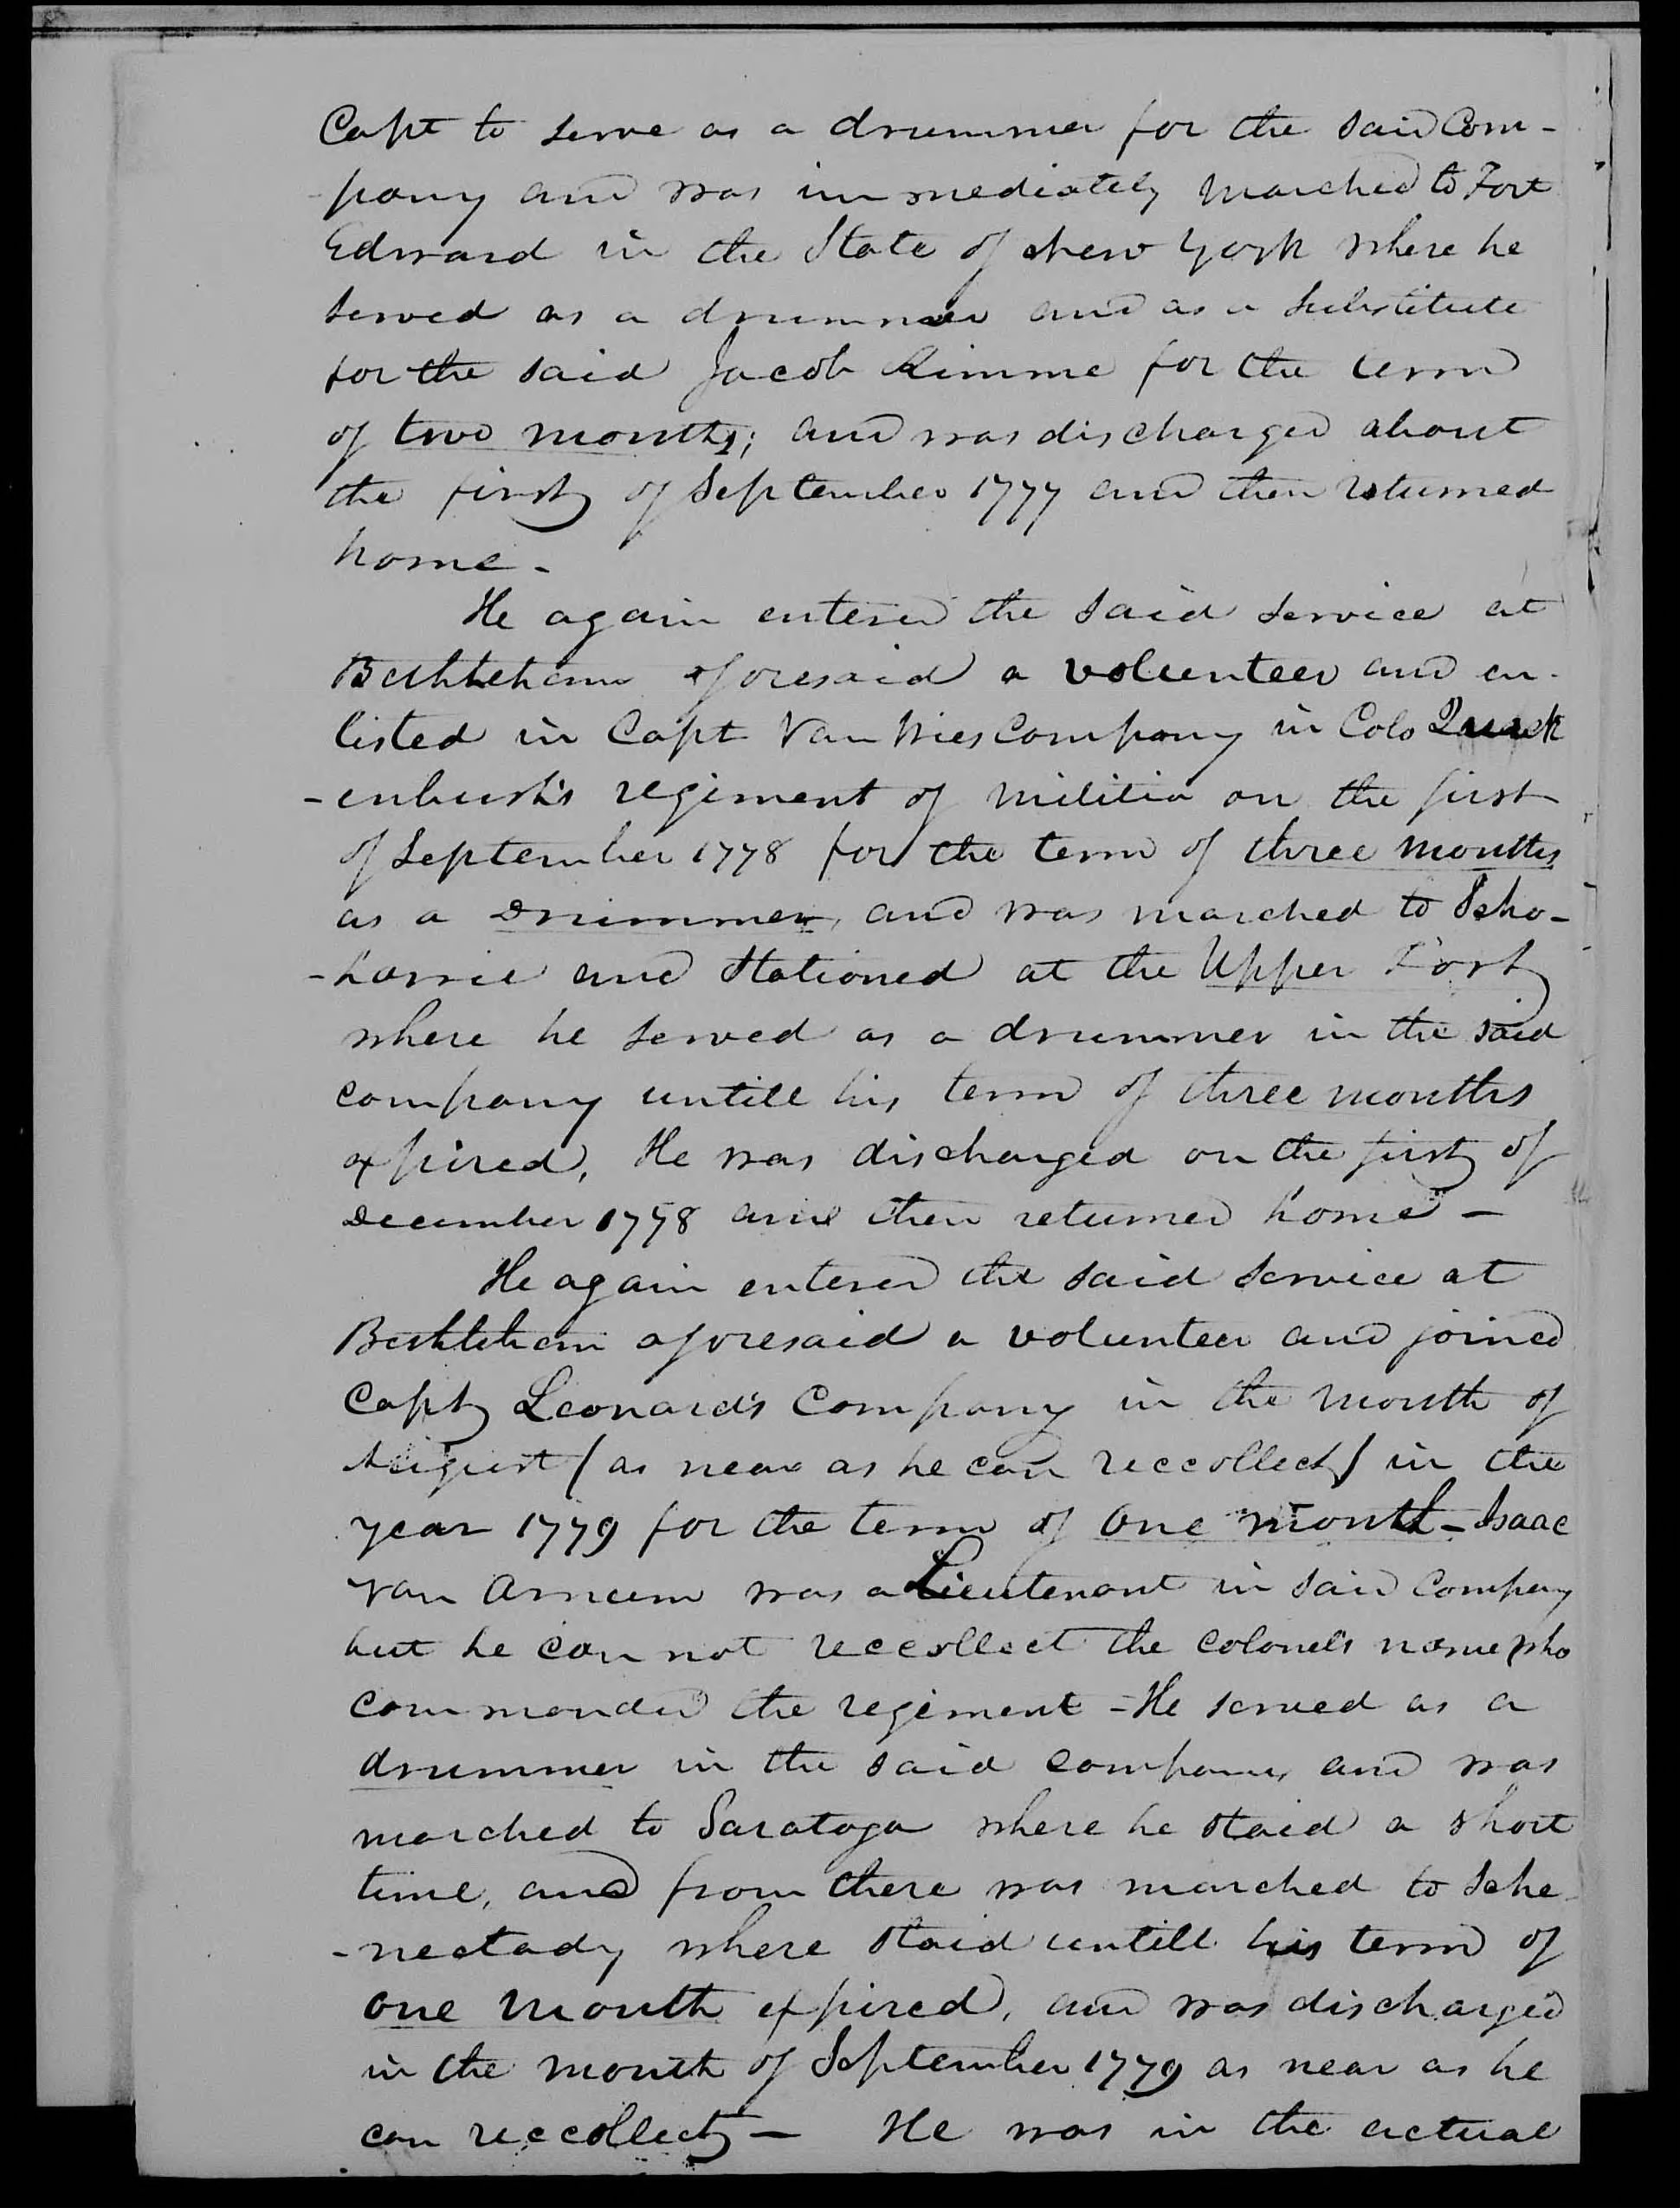 Capt to serve as a drummer for the said Com-
-pany and was immediately marched to Fort
Edward in the State of New York where he
served as a drummer and as a substitute
for the said Jacob Kimme for the term
of two months; and was discharged about
the first of September 1777 and then returned
home -
He again entered the said service at
Bethlehem aforesaid a volunteer and en-
listed in Capt Van Wies Company in Colo Quack
-enbush's regiment of militia on the first
of September 1778 for the term of three months
as a Drummer, and was marched to Scho-
-harrie and Stationed at the Upper Fort
where he served as a drummer in the said
company untill his term of three months
expired, He was discharged on the first of
December 1778 and then returned home -
He again entered the said service at
Bethlehem aforesaid a volunteer and joined
Capt Leonard's Company in the month of
August (as near as he can reccollect) in the
year 1779 for the term of one month - Isaac
Van Arnum was a Lieutenant in said Company
but he can not reccollect the colonel's name who
commanded the regiment - He served as a
drummer in the said company and was
marched to Saratoga where he staid a short
time, and from there was marched to Sche
-nectady where staid untill his term of
one month expired, and was discharged
in the month of September 1779 as near as he
can reccollect - He was in the actual